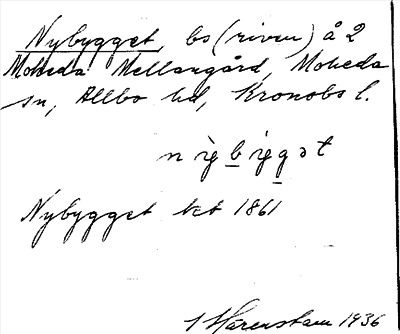 Nybygget, bs (riven) å 2
Moheda Mellangård, Moheda
sn, Allbo hd, Kronobs l.
Nybygget kt 1861
Harenstam 1936